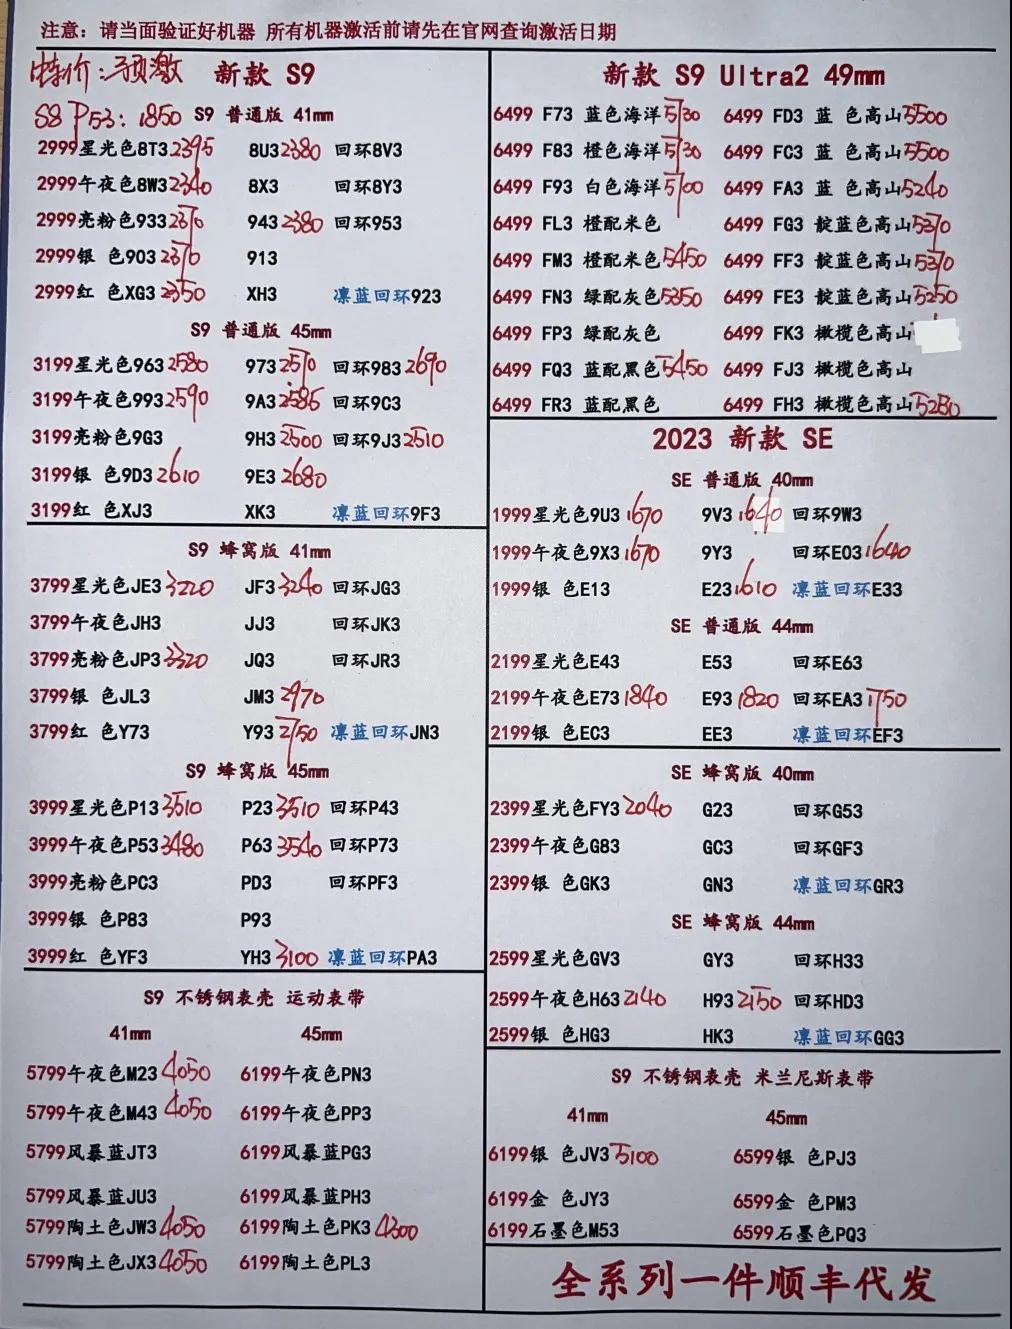 注意：请当面验证好机器 所有机器激活前请先在官网查询激活日期
特价：预激 新款 S9
S8 P53：1850 S9 普通版 41mm
2999星光色8T3 2395 8U3 2380 回环8V3
2999午夜色8W3 2340 8X3 回环8Y3
2999亮粉色933 2370 943 2380 回环953
2999银 色903 2370 913
2999红 色XG3 2350 XH3 凛蓝回环923
S9 普通版 45mm
3199星光色963 2580 973 2570 回环983 2690
3199午夜色993 2590 9A3 2585 回环9C3
3199亮粉色9G3 9H3 2500 回环9J3 2510
3199银 色9D3 2610 9E3 2680
3199红 色XJ3 XK3 凛蓝回环9F3
S9 蜂窝版 41mm
3799星光色JE3 3220 JF3 3240 回环JG3
3799午夜色JH3 JJ3 回环JK3
3799亮粉色JP3 3320 JQ3 回环JR3
3799银 色JL3 JM3 2970
3799红 色Y73 Y93 2750 凛蓝回环JN3
S9 蜂窝版 45mm
3999星光色P13 3510 P23 3510 回环P43
3999午夜色P53 3480 P63 3540 回环P73
3999亮粉色PC3 PD3 回环PF3
3999银 色P83 P93
3999红 色YF3 YH3 3100 凛蓝回环PA3
S9 不锈钢表壳 运动表带
41mm 45mm
5799午夜色M23 4050 6199午夜色PN3
5799午夜色M43 4050 6199午夜色PP3
5799风暴蓝JT3 6199风暴蓝PG3
5799风暴蓝JU3 6199风暴蓝PH3
5799陶土色JW3 4050 6199陶土色PK3 4300
5799陶土色JX3 4050 6199陶土色PL3
新款 S9 Ultra2 49mm
6499 F73 蓝色海洋 5730 6499 FD3 蓝 色高山 5500
6499 F83 橙色海洋 5730 6499 FC3 蓝 色高山 5500
6499 F93 白色海洋 5700 6499 FA3 蓝 色高山 5240
6499 FL3 橙配米色 6499 FG3 靛蓝色高山 5370
6499 FM3 橙配米色 5450 6499 FF3 靛蓝色高山 5370
6499 FN3 绿配灰色 5350 6499 FE3 靛蓝色高山 5250
6499 FP3 绿配灰色 6499 FK3 橄榄色高山
6499 FQ3 蓝配黑色 5450 6499 FJ3 橄榄色高山
6499 FR3 蓝配黑色 6499 FH3 橄榄色高山 5280
2023 新款 SE
SE 普通版 40mm
1999星光色9U3 1670 9V3 1640 回环9W3
1999午夜色9X3 1670 9Y3 回环E03 1640
1999银 色E13 E23 1610 凛蓝回环E33
SE 普通版 44mm
2199星光色E43 E53 回环E63
2199午夜色E73 1840 E93 1820 回环EA3 1750
2199银 色EC3 EE3 凛蓝回环EF3
SE 蜂窝版 40mm
2399星光色FY3 2040 G23 回环G53
2399午夜色G83 GC3 回环GF3
2399银 色GK3 GN3 凛蓝回环GR3
SE 蜂窝版 44mm
2599星光色GV3 GY3 回环H33
2599午夜色H63 2140 H93 2150 回环HD3
2599银 色HG3 HK3 凛蓝回环GG3
S9 不锈钢表壳 米兰尼斯表带
41mm 45mm
6199银 色JV3 5100 6599银 色PJ3
6199金 色JY3 6599金 色PM3
6199石墨色M53 6599石墨色PQ3
全系列一件顺丰代发